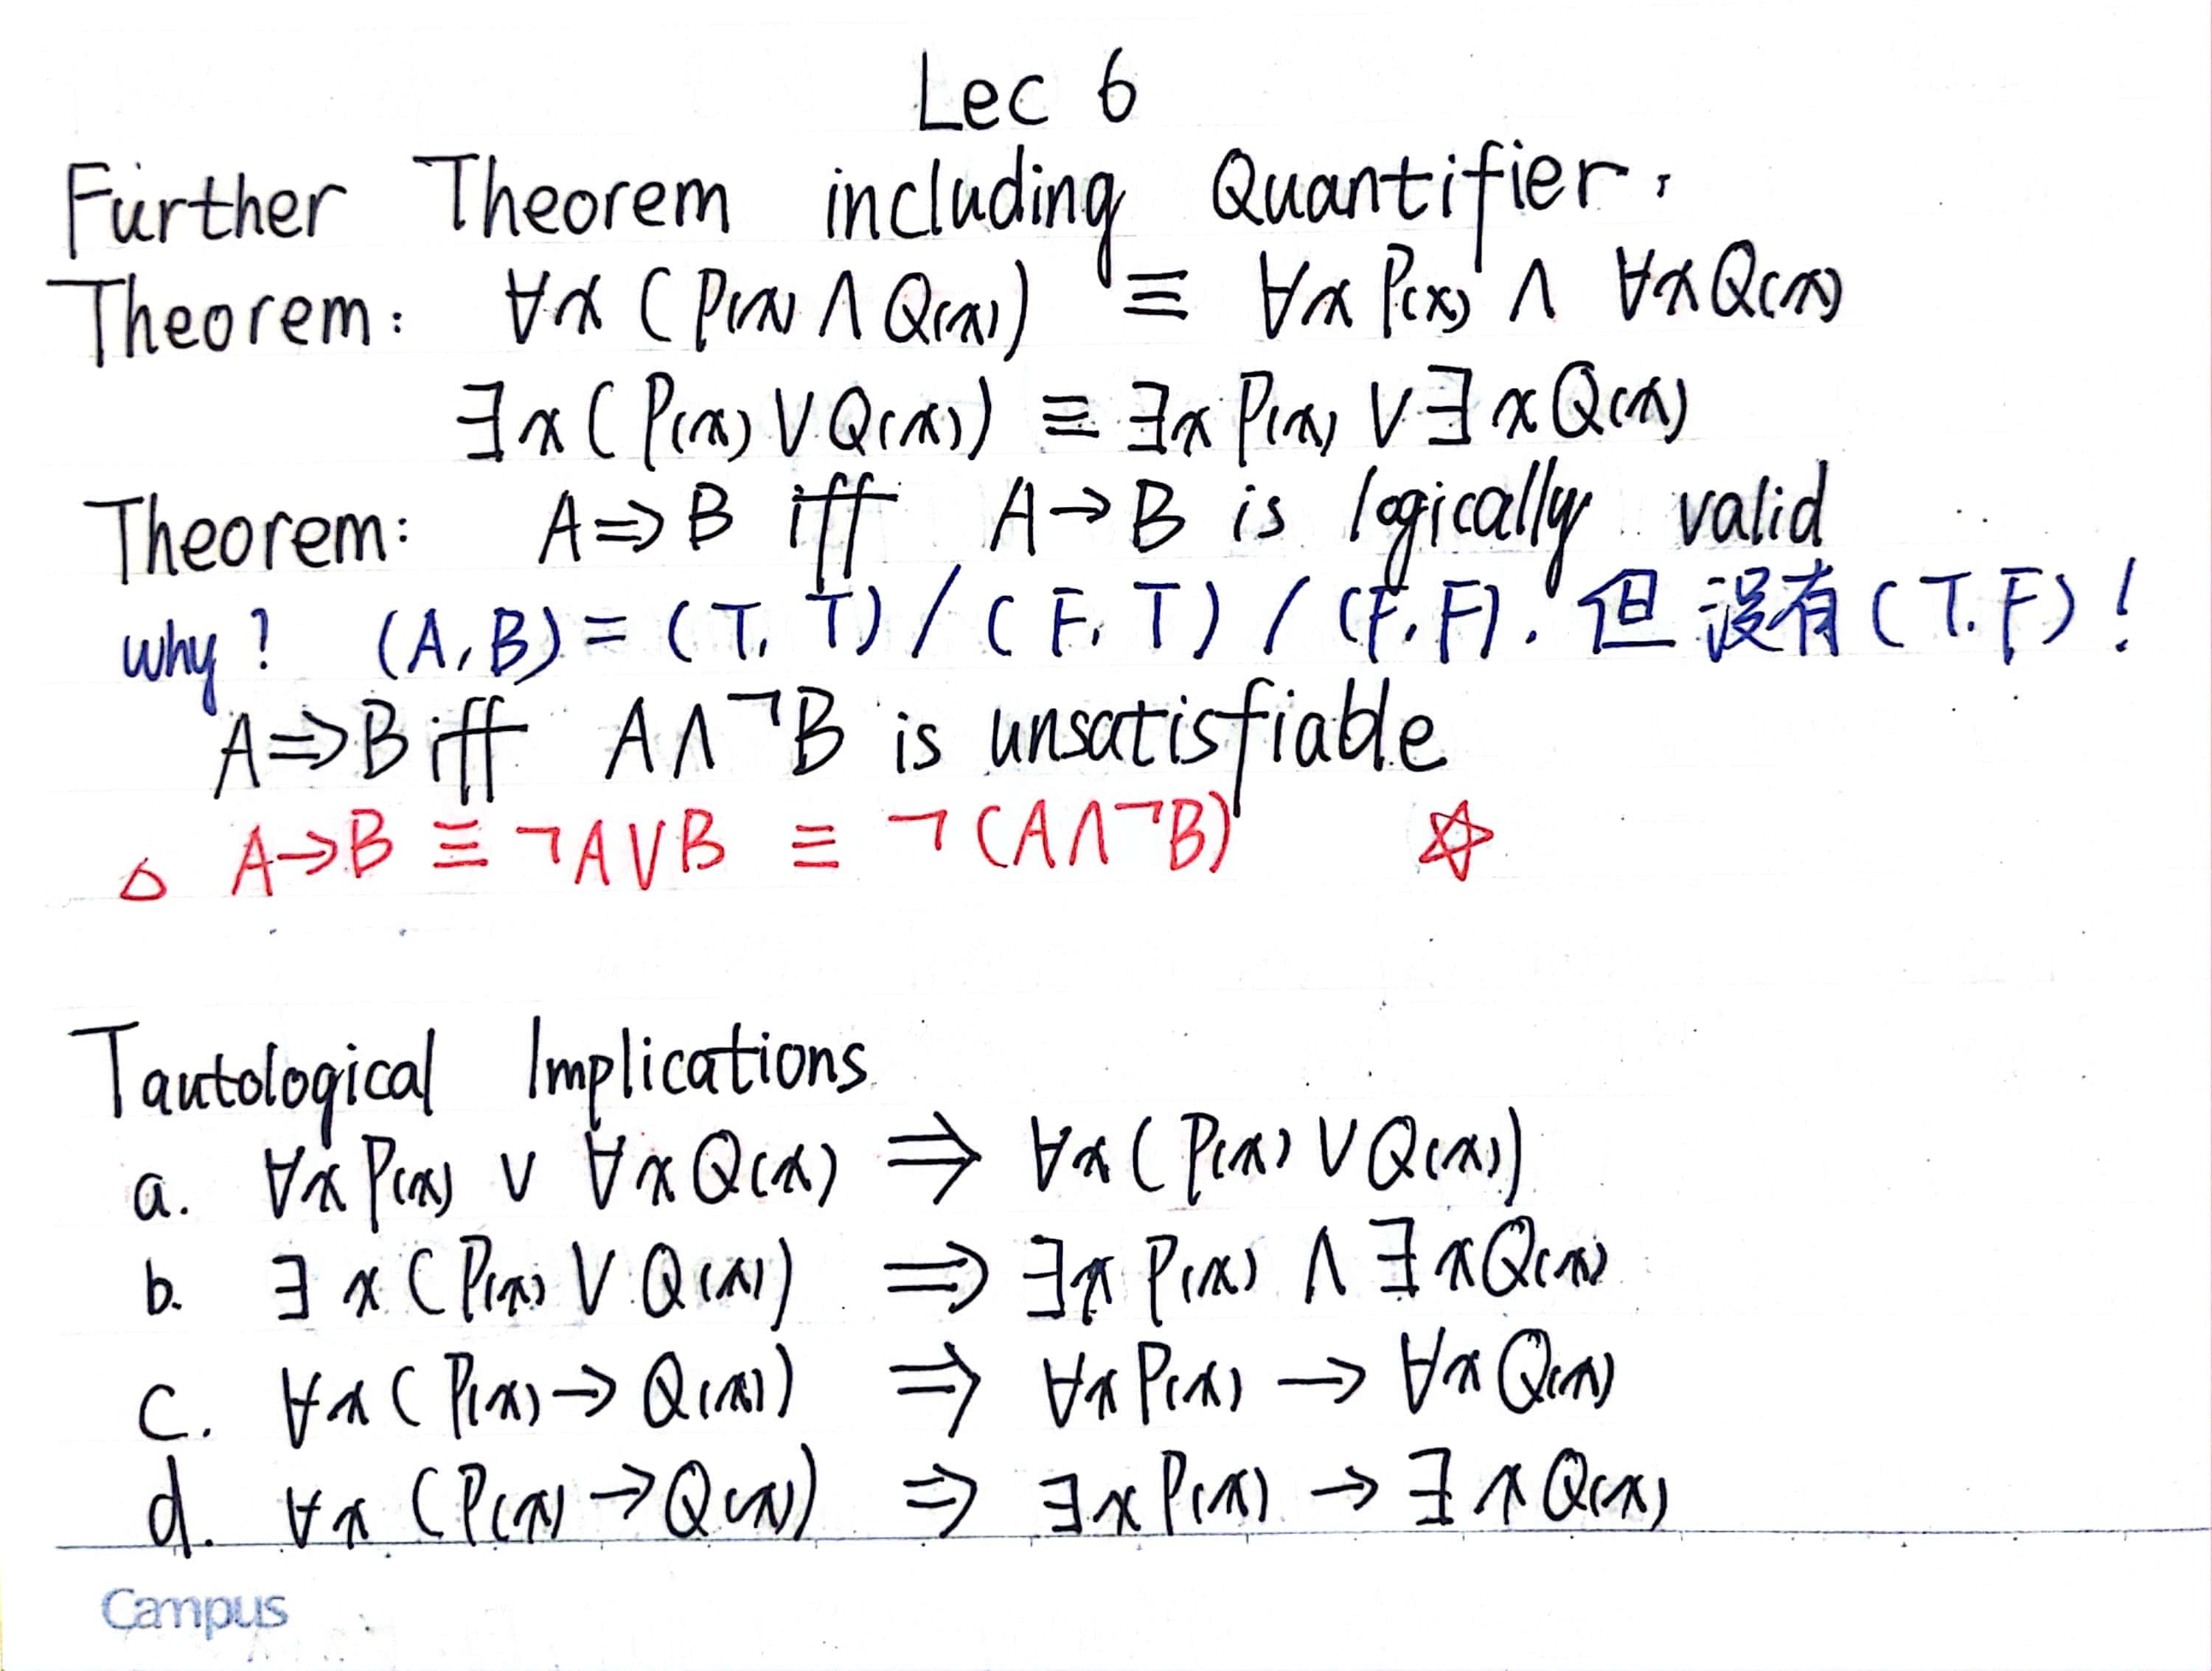 Lec 6
Further Theorem including Quantifier.
Theorem: ∀x (P(x) ∧ Q(x)) ≡ ∀x P(x) ∧ ∀x Q(x)
∃x (P(x) ∨ Q(x)) ≡ ∃x P(x) ∨ ∃x Q(x)
Theorem: A ⇒ B iff A → B is logically valid
why? (A, B) = (T, T) / (F, T) / (F, F). 但没有 (T, F)!
A ⇒ B iff A ∧ ¬B is unsatisfiable
△ A → B ≡ ¬A ∨ B ≡ ¬(A ∧ ¬B) ☆
Tautological Implications
a. ∀x P(x) ∨ ∀x Q(x) ⇒ ∀x (P(x) ∨ Q(x))
b. ∃x (P(x) ∨ Q(x)) ⇒ ∃x P(x) ∧ ∃x Q(x)
c. ∀x (P(x) → Q(x)) ⇒ ∀x P(x) → ∀x Q(x)
d. ∀x (P(x) → Q(x)) ⇒ ∃x P(x) → ∃x Q(x)
Campus